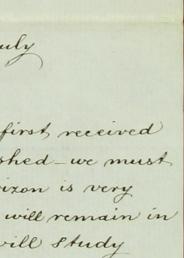 uly
first received
shed - we must
rizon is very
will remain in
will study